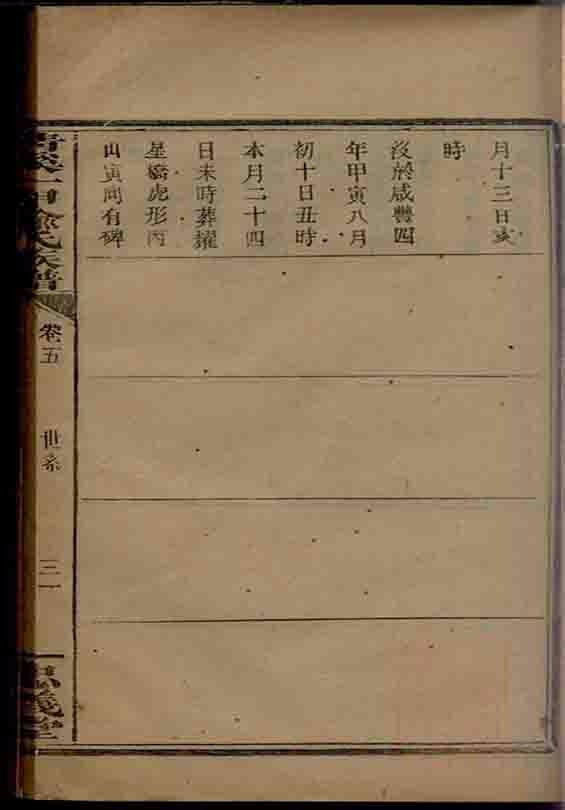 月十三日亥
時
沒於咸豐四
年甲寅八月
初十日丑時
本月二十四
日未時葬耀
星橋虎形丙
山寅向有碑
氏族譜
卷五
世系
三一
義堂